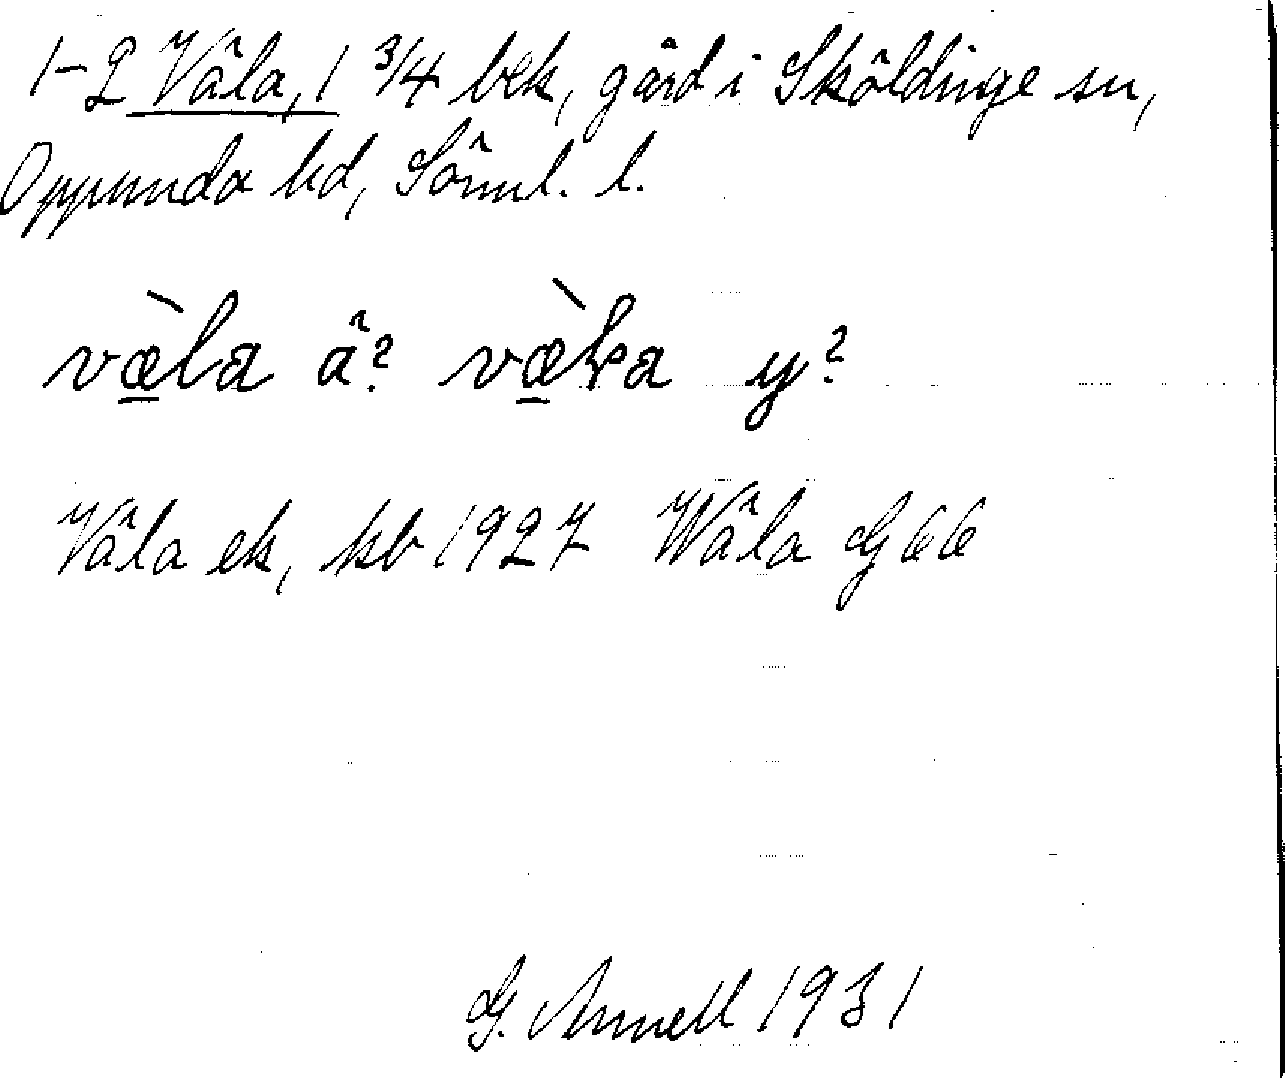 1-2 Våla, 1 3/4 bek, gård i Sköldinge sn,
Oppunda hd, Söml. l.
væ̀la ä? væ̀la y?
Våla ek, kb 1927 Wåla G 66
G. Annell 1931